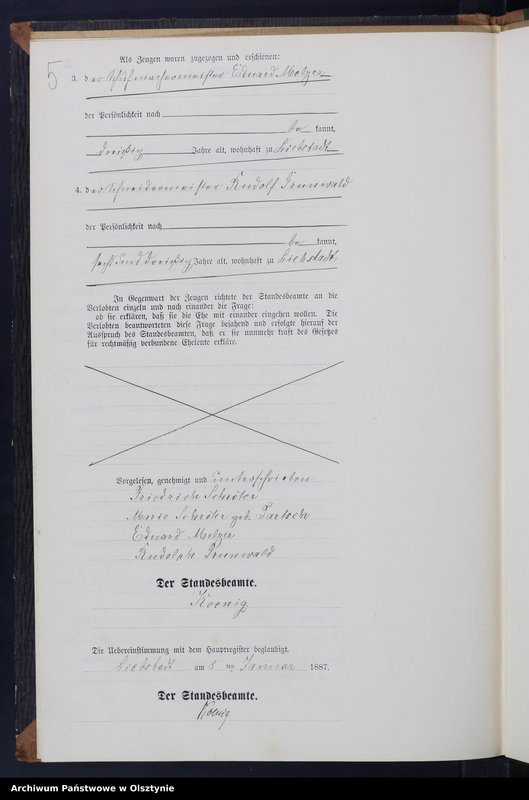 5
Als Zeugen waren zugezogen und erschienen:
3. der Schuhmachermeister Eduard Melzer
der Persönlichkeit nach
be kannt,
dreißig Jahre alt, wohnhaft zu Liebstadt
4. der Schneidermeister Rudolf Grunwald
der Persönlichkeit nach
be kannt,
sechs und dreißig Jahre alt, wohnhaft zu Liebstadt.
In Gegenwart der Zeugen richtete der Standesbeamte an die
Verlobten einzeln und nach einander die Frage:
ob sie erklären, daß sie die Ehe mit einander eingehen wollen. Die
Verlobten beantworteten diese Frage bejahend und erfolgte hierauf der
Ausspruch des Standesbeamten, daß er sie nunmehr kraft des Gesetzes
für rechtmäßig verbundene Eheleute erkläre.
Vorgelesen, genehmigt und unterschrieben
Friedrich Schröter
Marie Schröter geb. Tartsch
Eduard Melzer
Rudolph Grunwald
Der Standesbeamte.
Koenig
Die Uebereinstimmung mit dem Hauptregister beglaubigt.
Liebstadt am 8 ten Januar 1887.
Der Standesbeamte.
Koenig
Archiwum Państwowe w Olsztynie